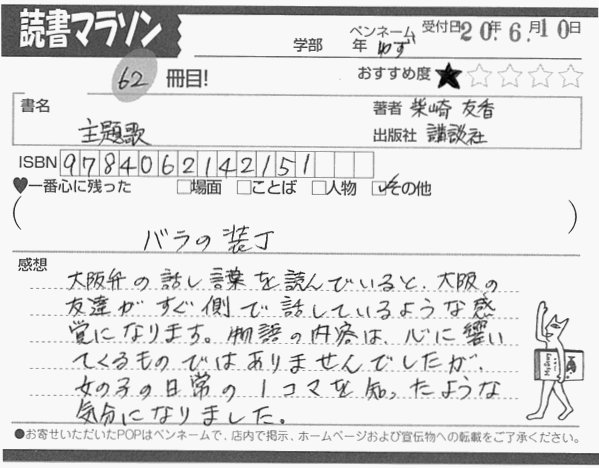 読書マラソン
学部 年
ペンネーム ゆず
受付日 20年 6月10日
62 冊目!
おすすめ度 ★☆☆☆☆
書名 主題歌
著者 柴崎 友香
出版社 講談社
ISBN 9784062142151
♥一番心に残った □場面 □ことば □人物 ☑その他
(バラの装丁)
感想
大阪弁の話し言葉を読んでいると、大阪の
友達がすぐ側で話しているような感
覚になります。物語の内容は、心に響い
てくるものではありませんでしたが、
女の子の日常の1コマを知ったような
気分になりました。
●お寄せいただいたPOPはペンネームで、店内で掲示、ホームページおよび宣伝物への転載をご了承ください。